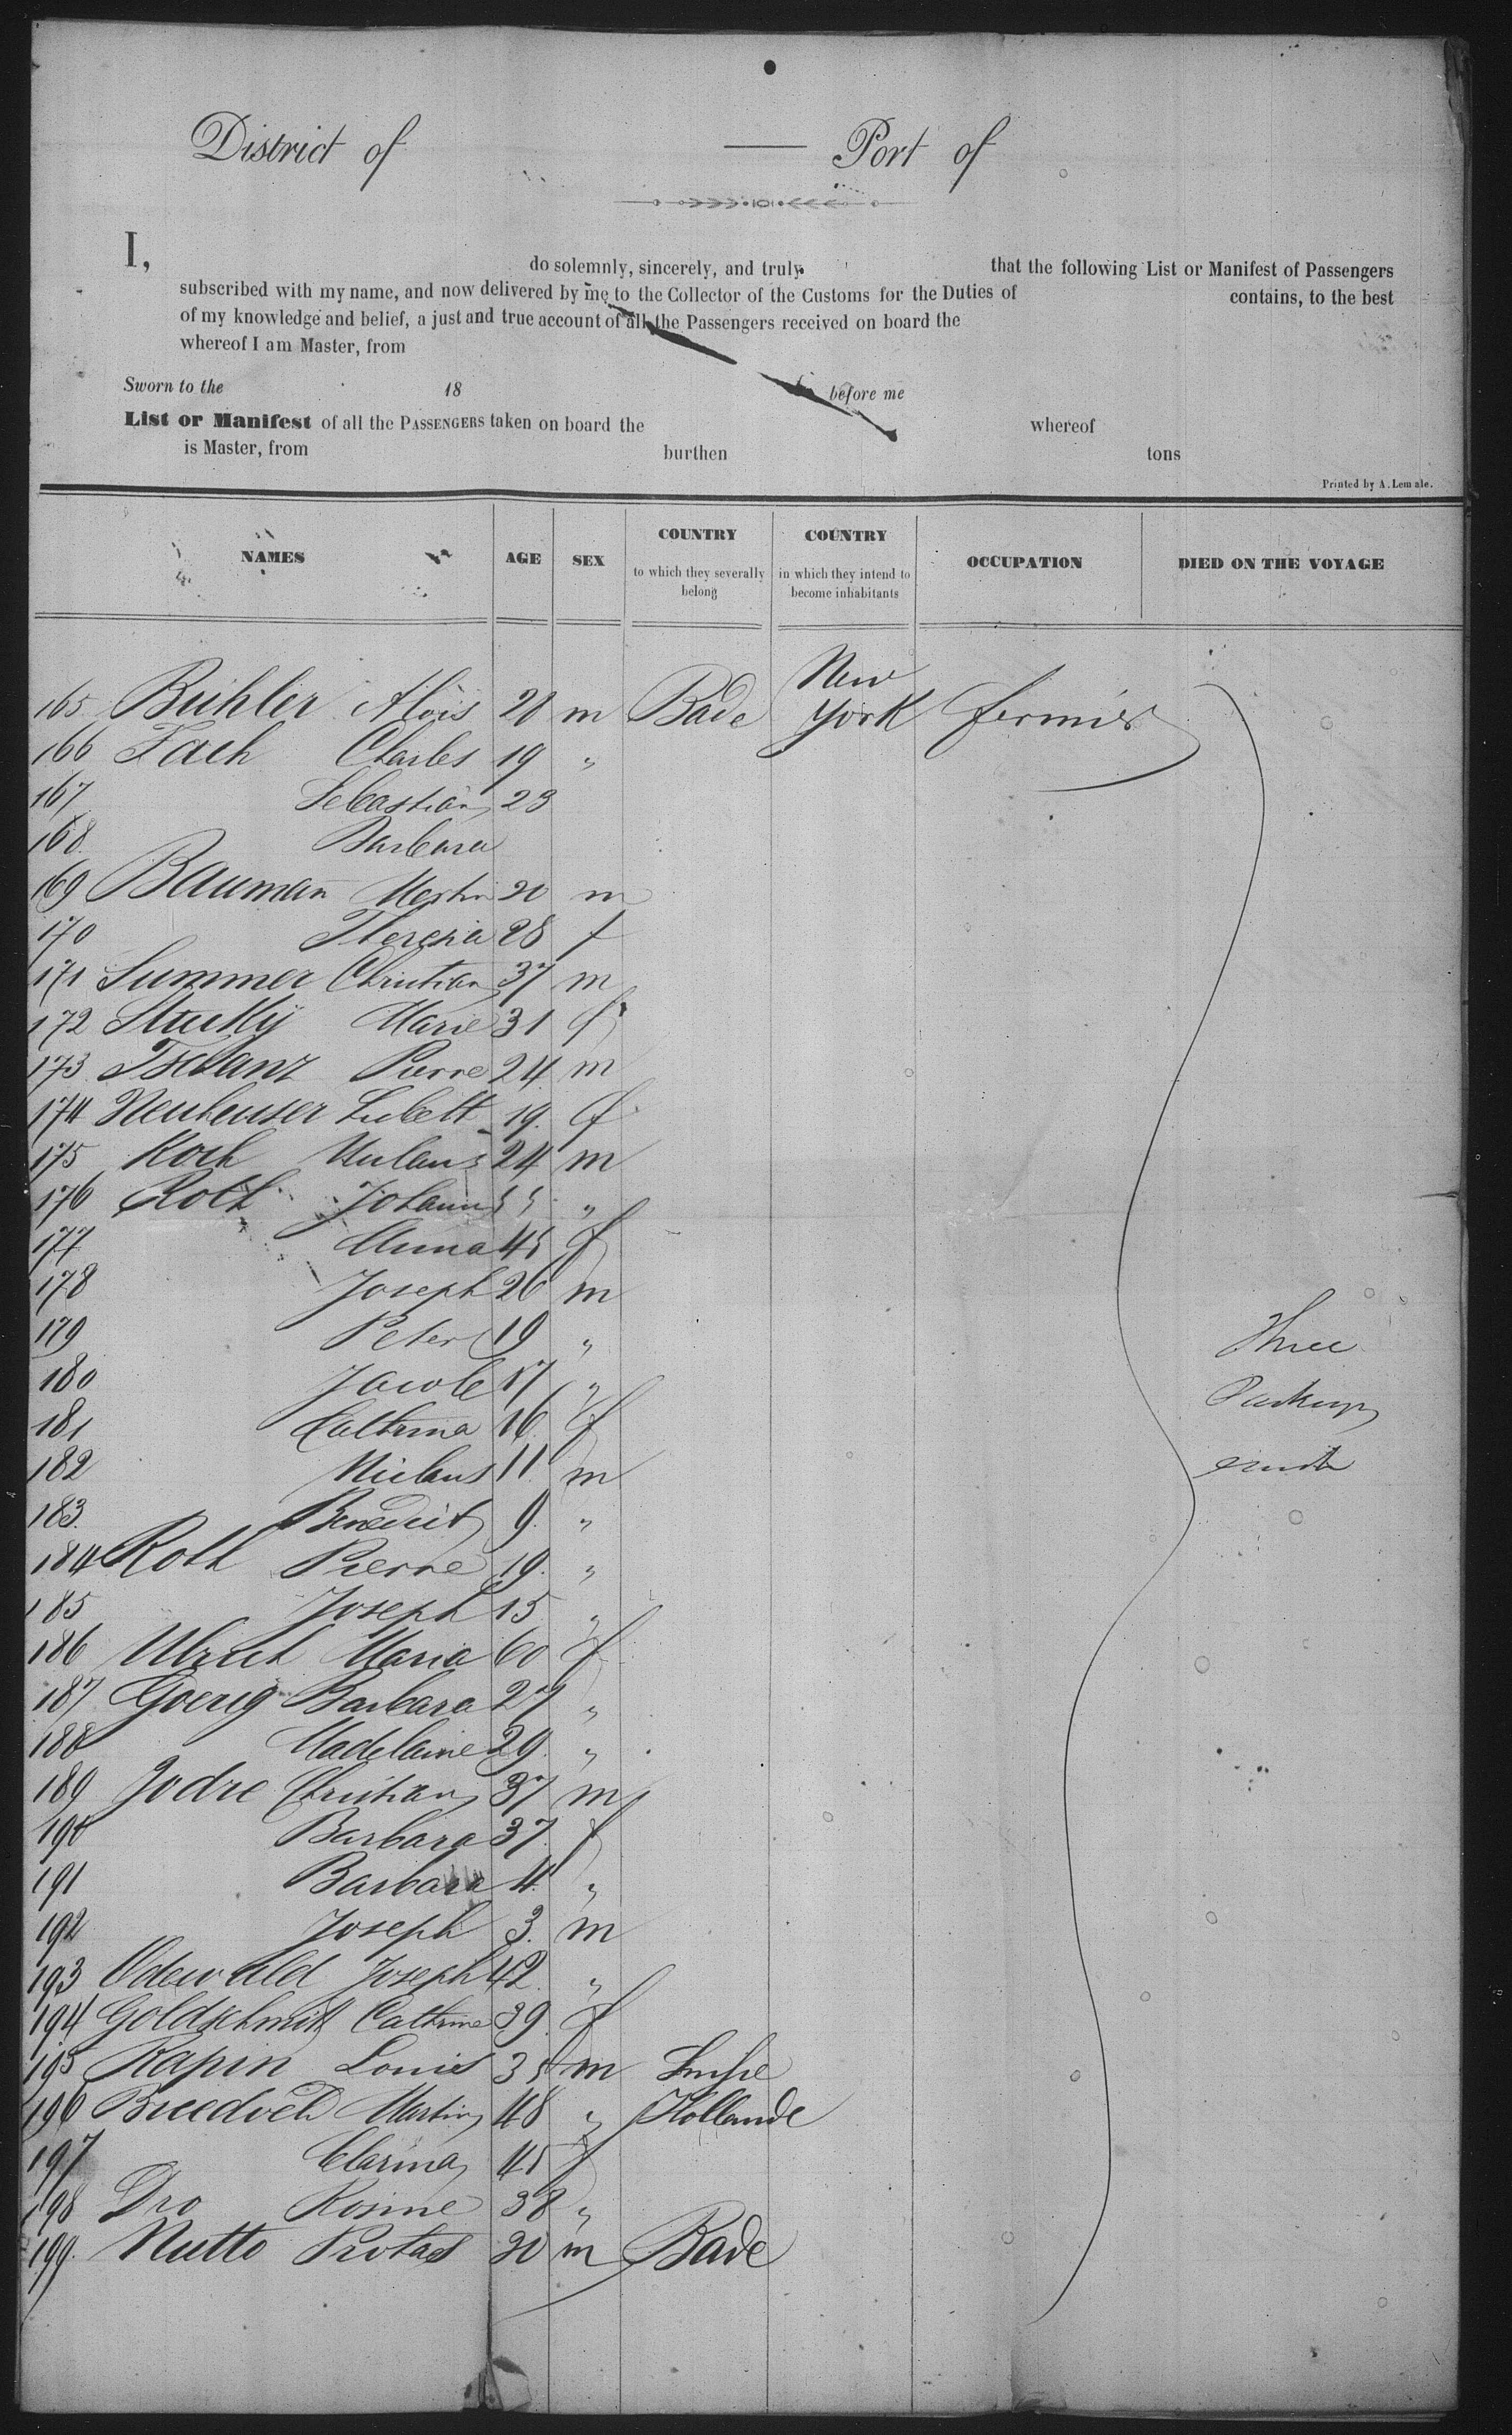 District of — Port of
I, do solemnly, sincerely, and truly that the following List or Manifest of Passengers
subscribed with my name, and now delivered by me to the Collector of the Customs for the Duties of contains, to the best
of my knowledge and belief, a just and true account of all the Passengers received on board the
whereof I am Master, from
Sworn to the 18 before me
List or Manifest of all the PASSENGERS taken on board the whereof
is Master, from burthen tons
Printed by A. Lemale.
NAMES AGE SEX COUNTRY to which they severally belong COUNTRY in which they intend to become inhabitants OCCUPATION DIED ON THE VOYAGE
165 Buhler Aloïs 28 m Bade New York fermier
166 Fach Charles 19 "
167 Sebastian 23
168 Barbara
169 Bauman Martin 20 m
170 Theresia 28 f
171 Summer Christian 37 m
172 Stucky Marie 31 f
173 Tschanz Pierre 24 m
174 Neuhauser 19 f
175 Koch Niclaus 24 m
176 Roth Johann "
177 Anna 45 f
178 Joseph 26 m
179 Peter 19 "
180 Jacob 17 "
181 Cathrina 16 f
182 Niclaus 11 m
183 Benedict 9 "
184 Roth Pierre 19 "
185 Joseph 15 "
186 Ulrich Maria 60 f
187 Goerig Barbara 27 "
188 Madelaine 29 "
189 Jodre Christian 37 m
190 Barbara 37 f
191 Barbara 4 "
192 Joseph 3 m
193 Odewald Joseph 42 "
194 Goldschmit Cathrine 39 f
195 Rapin Louis 35 m
196 Martin 48 " Hollande
197 Clarina 45 f
198 Dro Rosine 38 "
199 Nutto Protas 30 m Bade
Three